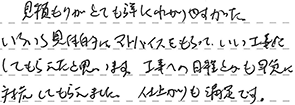 見積もりがとても詳しくわかりやすかった。
いろいろ具体的にアドバイスをもらって、いい工事に
してもらえたと思います。工事への日程なども早急に
対応してもらえました。仕上がりも満足です。